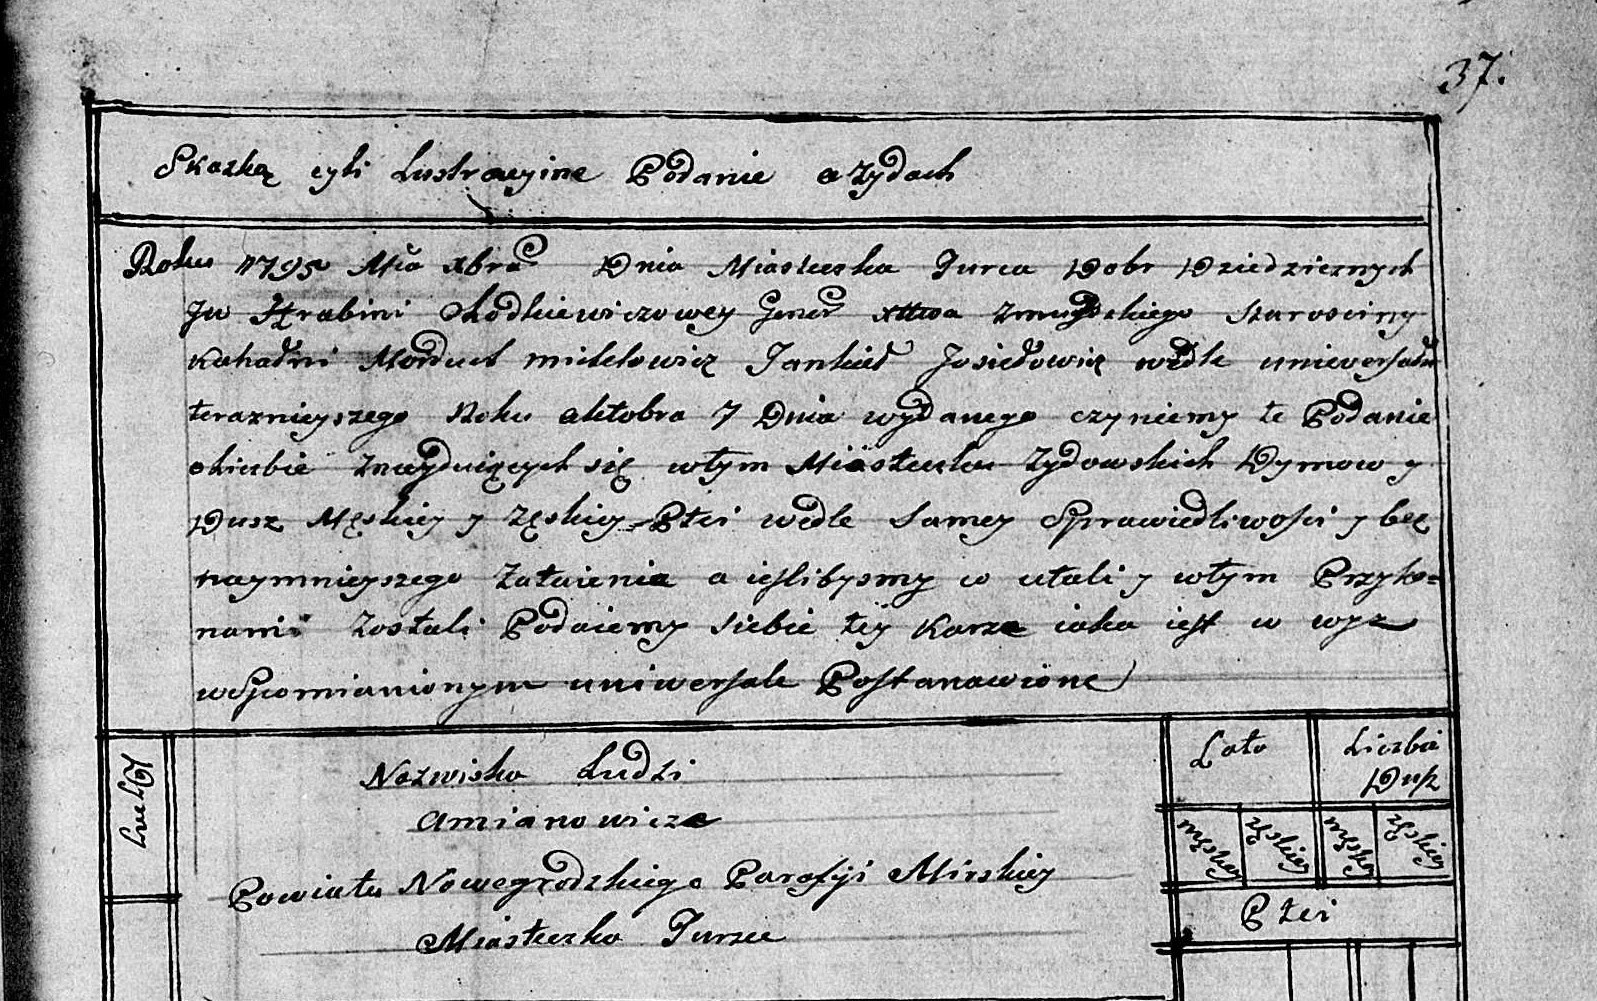 37.
Skazką czyli Lustracyine Podanie o Zydach
Roku 1795 Mca Xbra Dnia Miasteczka Turca Dobr Dziedzicznych
Jw Hrabini Chodkiewiczowey Gener Xttwa Zmuydzkiego Starosciny
Kahałni Morduch Michelowicz Jankiel Josielowicz wedle uniwersału
terazniejszego Roku Oktobra 7 Dnia wydanego czyniemy te Podanie
o liczbie Znayduiących się w tym Miasteczku Zydowskich Dymow y
Dusz Męskiey y Zęskiey Płci wedle Samey Sprawiedliwosci y bez
naymnieyszego Zataienia a iesliby smy co utaili y w tym Przyko=
nanii Zostali Podaiemy siebie tey Karze iaka iest w wyz
wspomianionym uniwersale Postanowione
Liczba Dymy
Nazwiska Ludzi
a mianowicze
Powiatu Nowogrodzkiego Parafiji Mirskiey
Miasteczko Turzec
Lato
Liczba
Dusz
męskiey
zęskiey
męskiey
zęskiey
Płci